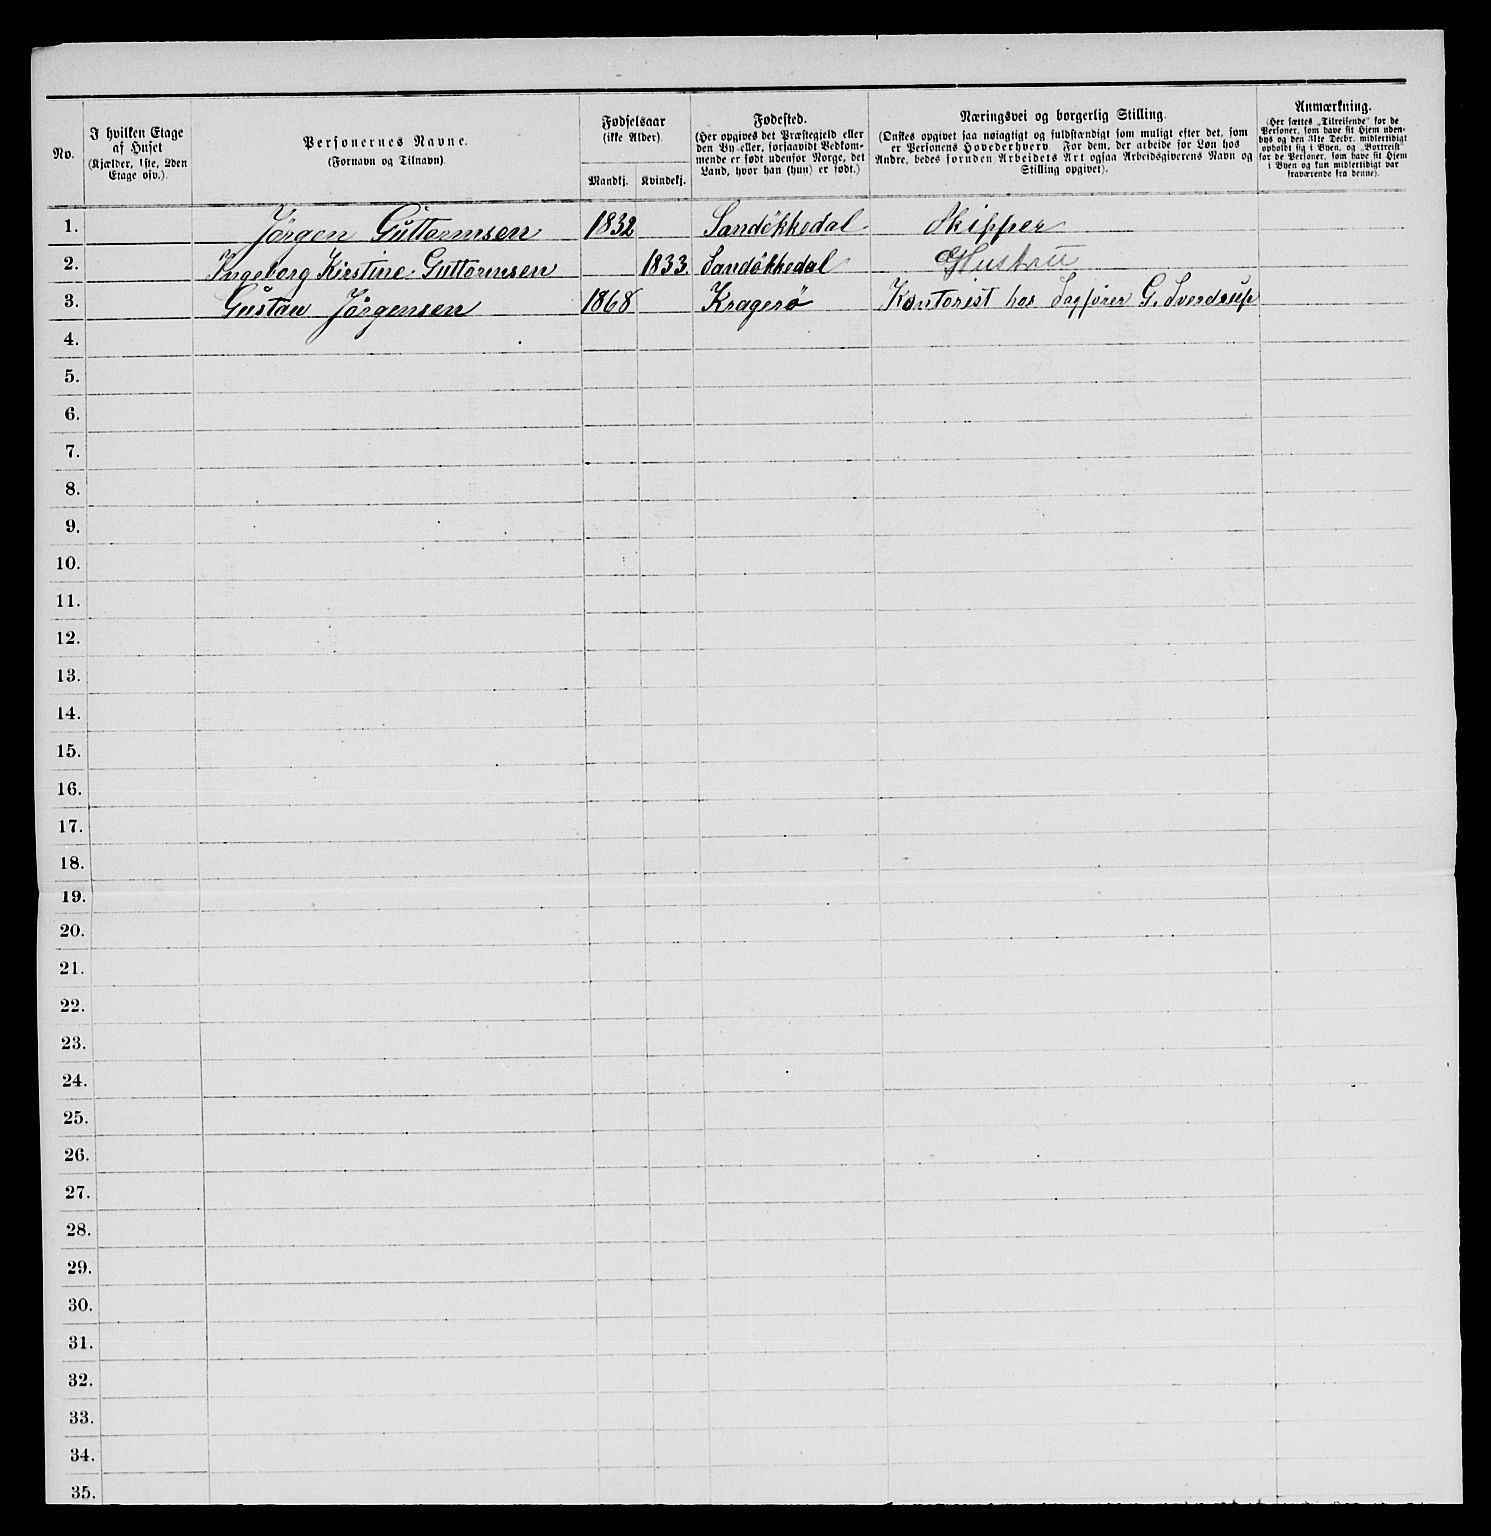 No.
I hvilken Etage af Huset (Kjælder, 1ste, 2den Etage osv.).
Personernes Navne. (Fornavn og Tilnavn).
Fødselsaar (ikke Alder).
Mandkj. Kvindekj.
Fødested. (Her opgives det Præstegjeld eller den By eller, forsaavidt Vedkommende er født udenfor Norge, det Land, hvor han (hun) er født.)
Næringsvei og borgerlig Stilling. (Ønskes opgivet saa nøiagtigt og fuldstændigt som muligt efter det, som er Personens Hovederhverv. For dem, der arbeide for Løn hos Andre, bedes foruden Arbeidets Art ogsaa Arbeidsgiverens Navn og Stilling opgivet).
Anmærkning. (Her sættes „Tilreisende" for de Personer, som have sit Hjem udenbys og den 31te Decbr. midlertidigt opholdt sig i Byen, og „Bortreist" for de Personer, som have sit Hjem i Byen og kun midlertidigt var fraværende fra denne).
1. Jørgen Guttormsen 1832 Sandökkedal Skipper
2. Ingeborg Kirstine Guttormsen 1833 Sandökkedal Hustru
3. Gustav Jörgensen 1868 Kragerö Kontorist hos Sagfører G. Sverdrup
4.
5.
6.
7.
8.
9.
10.
11.
12.
13.
14.
15.
16.
17.
18.
19.
20.
21.
22.
23.
24.
25.
26.
27.
28.
29.
30.
31.
32.
33.
34.
35.